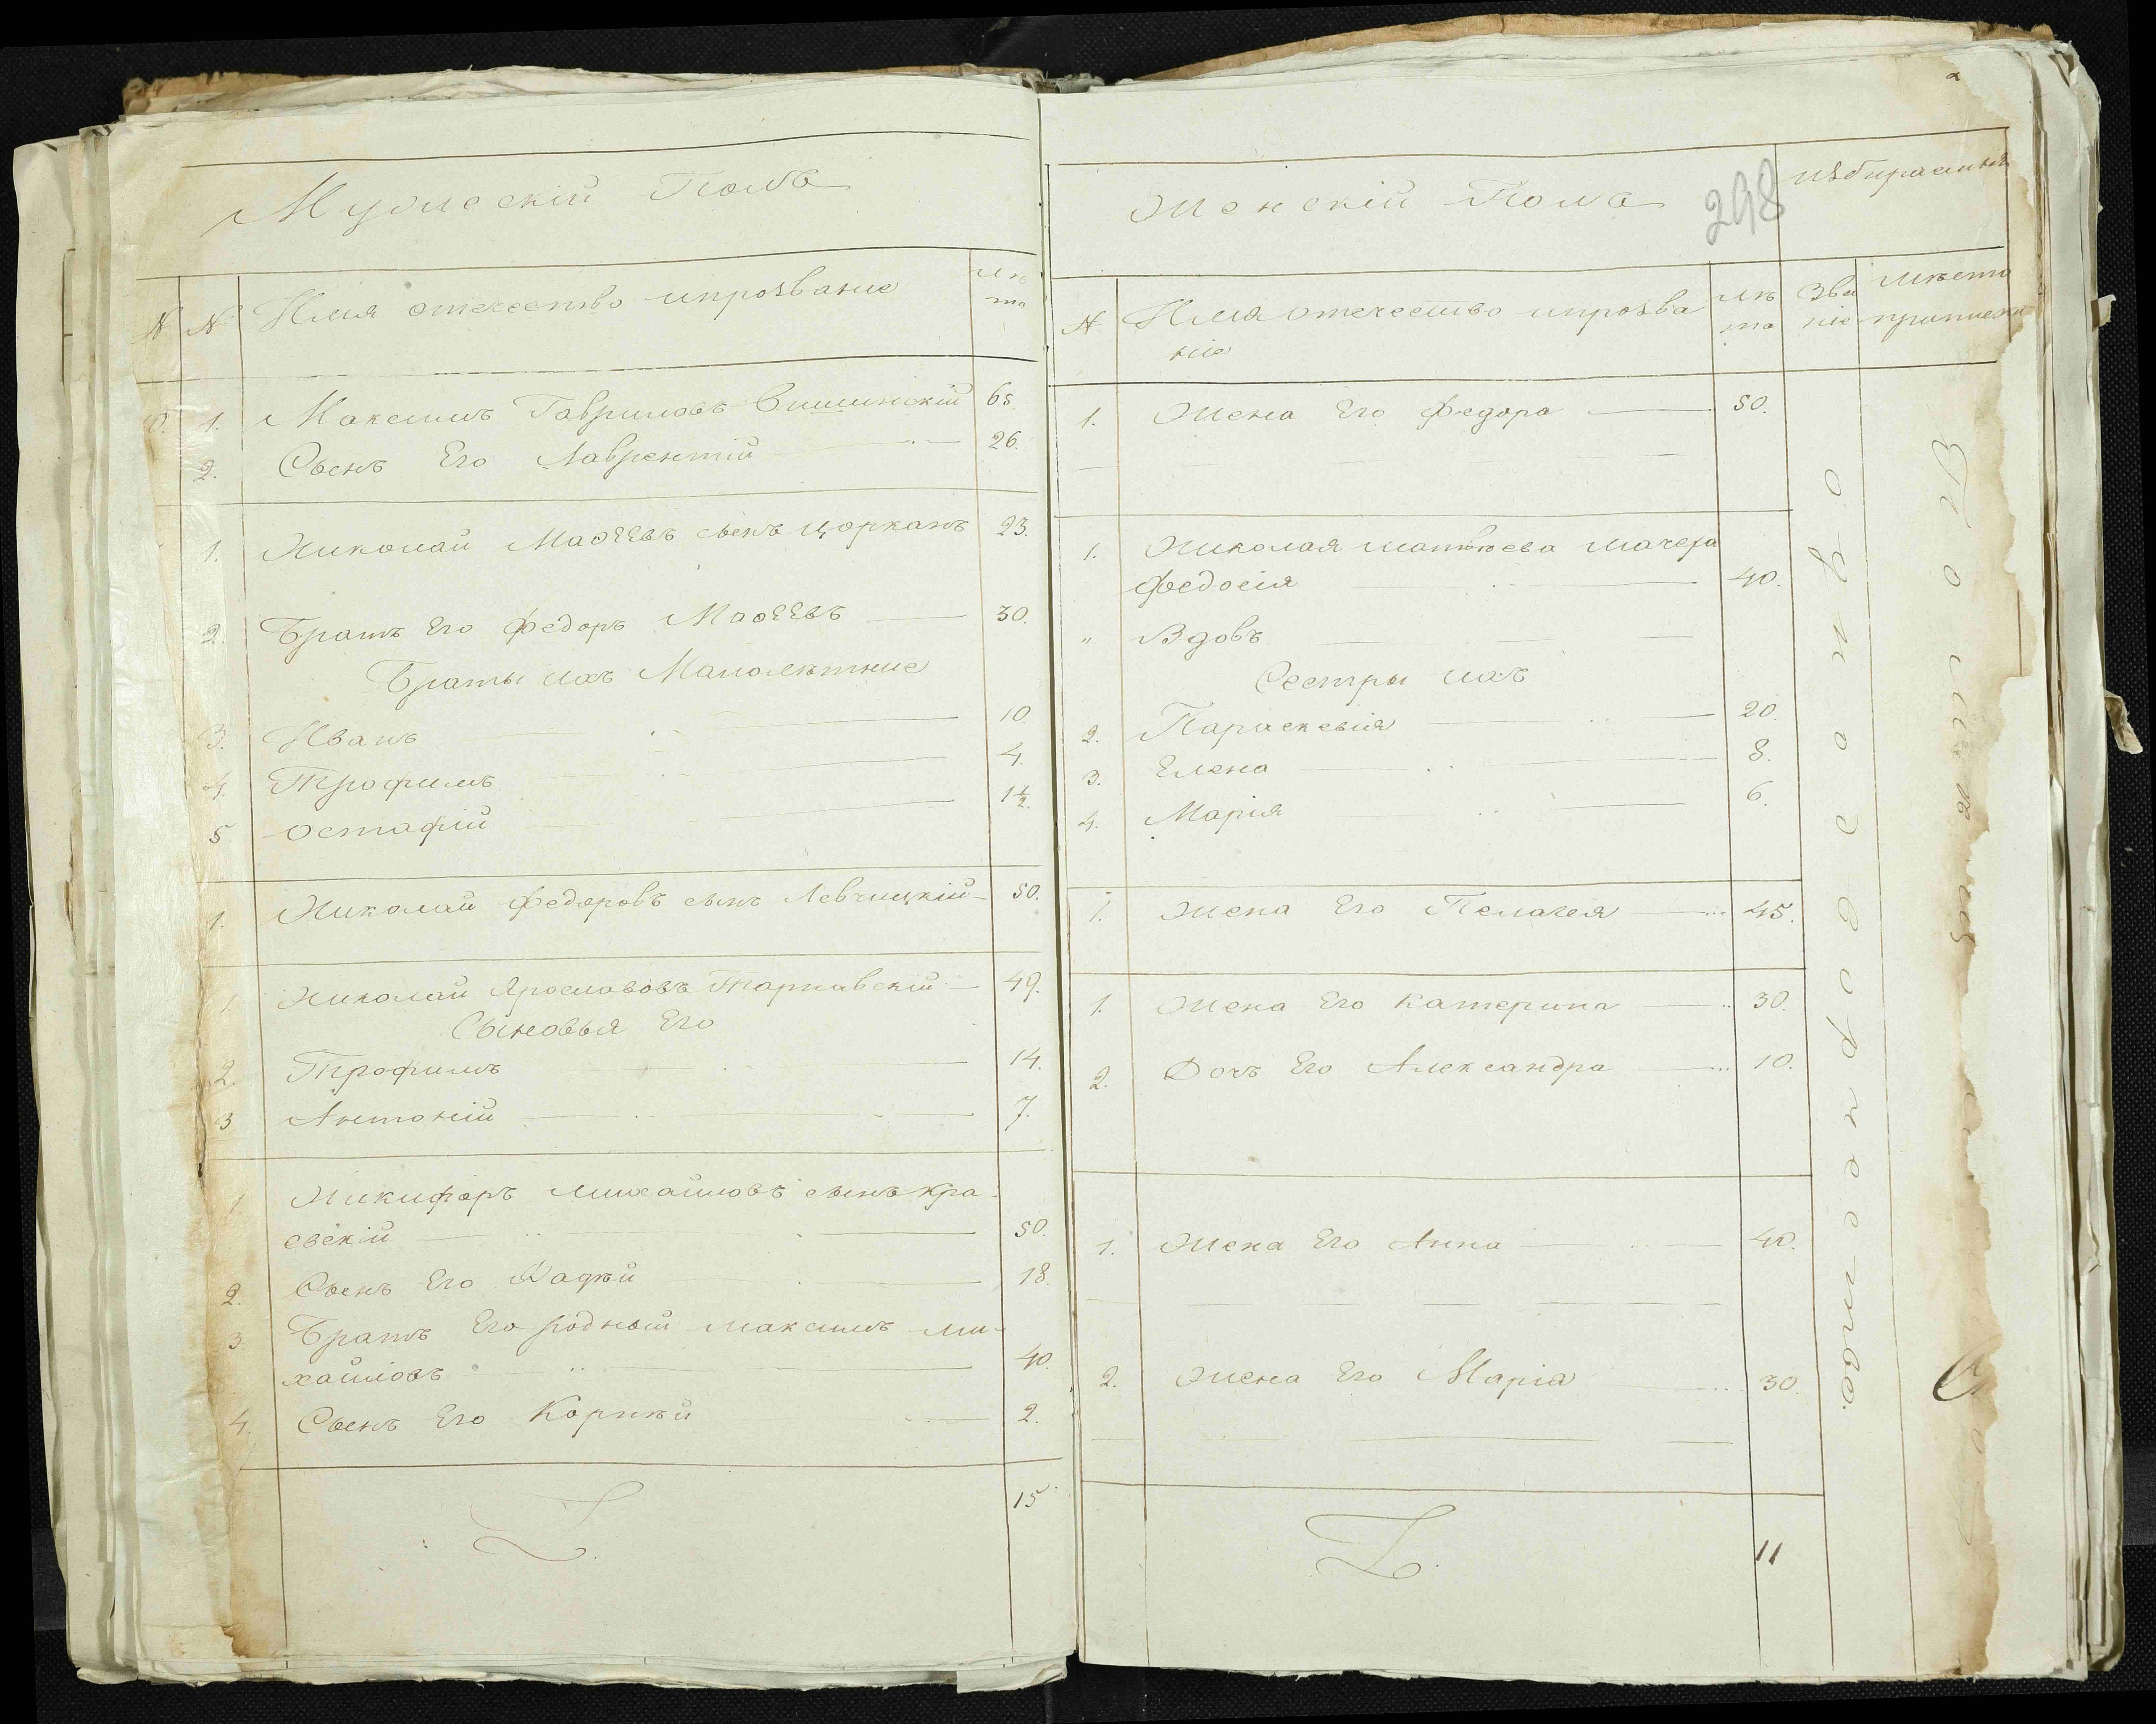 Мужескій Полъ
N N Имя отечество ипрозваніе лѣ
та
1. Максимъ Гавриловъ Вишинскій 65
2. Сынъ Его Лаврентій 26.
1. Николай Маөѣевъ сынъ Цорканъ 23.
2. Братъ Его Федоръ Маөѣевъ 30.
Браты ихъ Малолѣтніе
3. Иванъ 10.
4. Трофимъ 4.
5 Остафій 1½.
1. Николай Федоровъ сынъ Левчицкій 50.
1. Николай Ярославовъ Тарнавскій 49.
Сыновья Его
2. Трофимъ 14.
3 Антоній 7.
1 Никифоръ Михайловъ сынъ Кра-
евскій 50.
2. Сынъ Его Фадѣй 18.
3 Братъ Его родный Максимъ Ми-
хайловъ 40.
4. Сынъ Его Корнѣй 2.
15
Женскій Полъ 298 избираемыя
N Имя отечество ипрозва
ніе лѣ
та Зва
ніе мѣсто
приписки
1. Жена Его Федора 50.
1. Николая Матвѣева Мачеха
Федосія 40.
" Вдовъ
Сестры ихъ
2. Параскевія 20.
3. Елена 8.
4. Марія 6.
1. Жена Его Пелагея 45.
1. Жена Его Катерина 30.
2. Дочь Его Александра 10.
1. Жена Его Анна 40.
2. Жена Его Марія 30.
11
одно